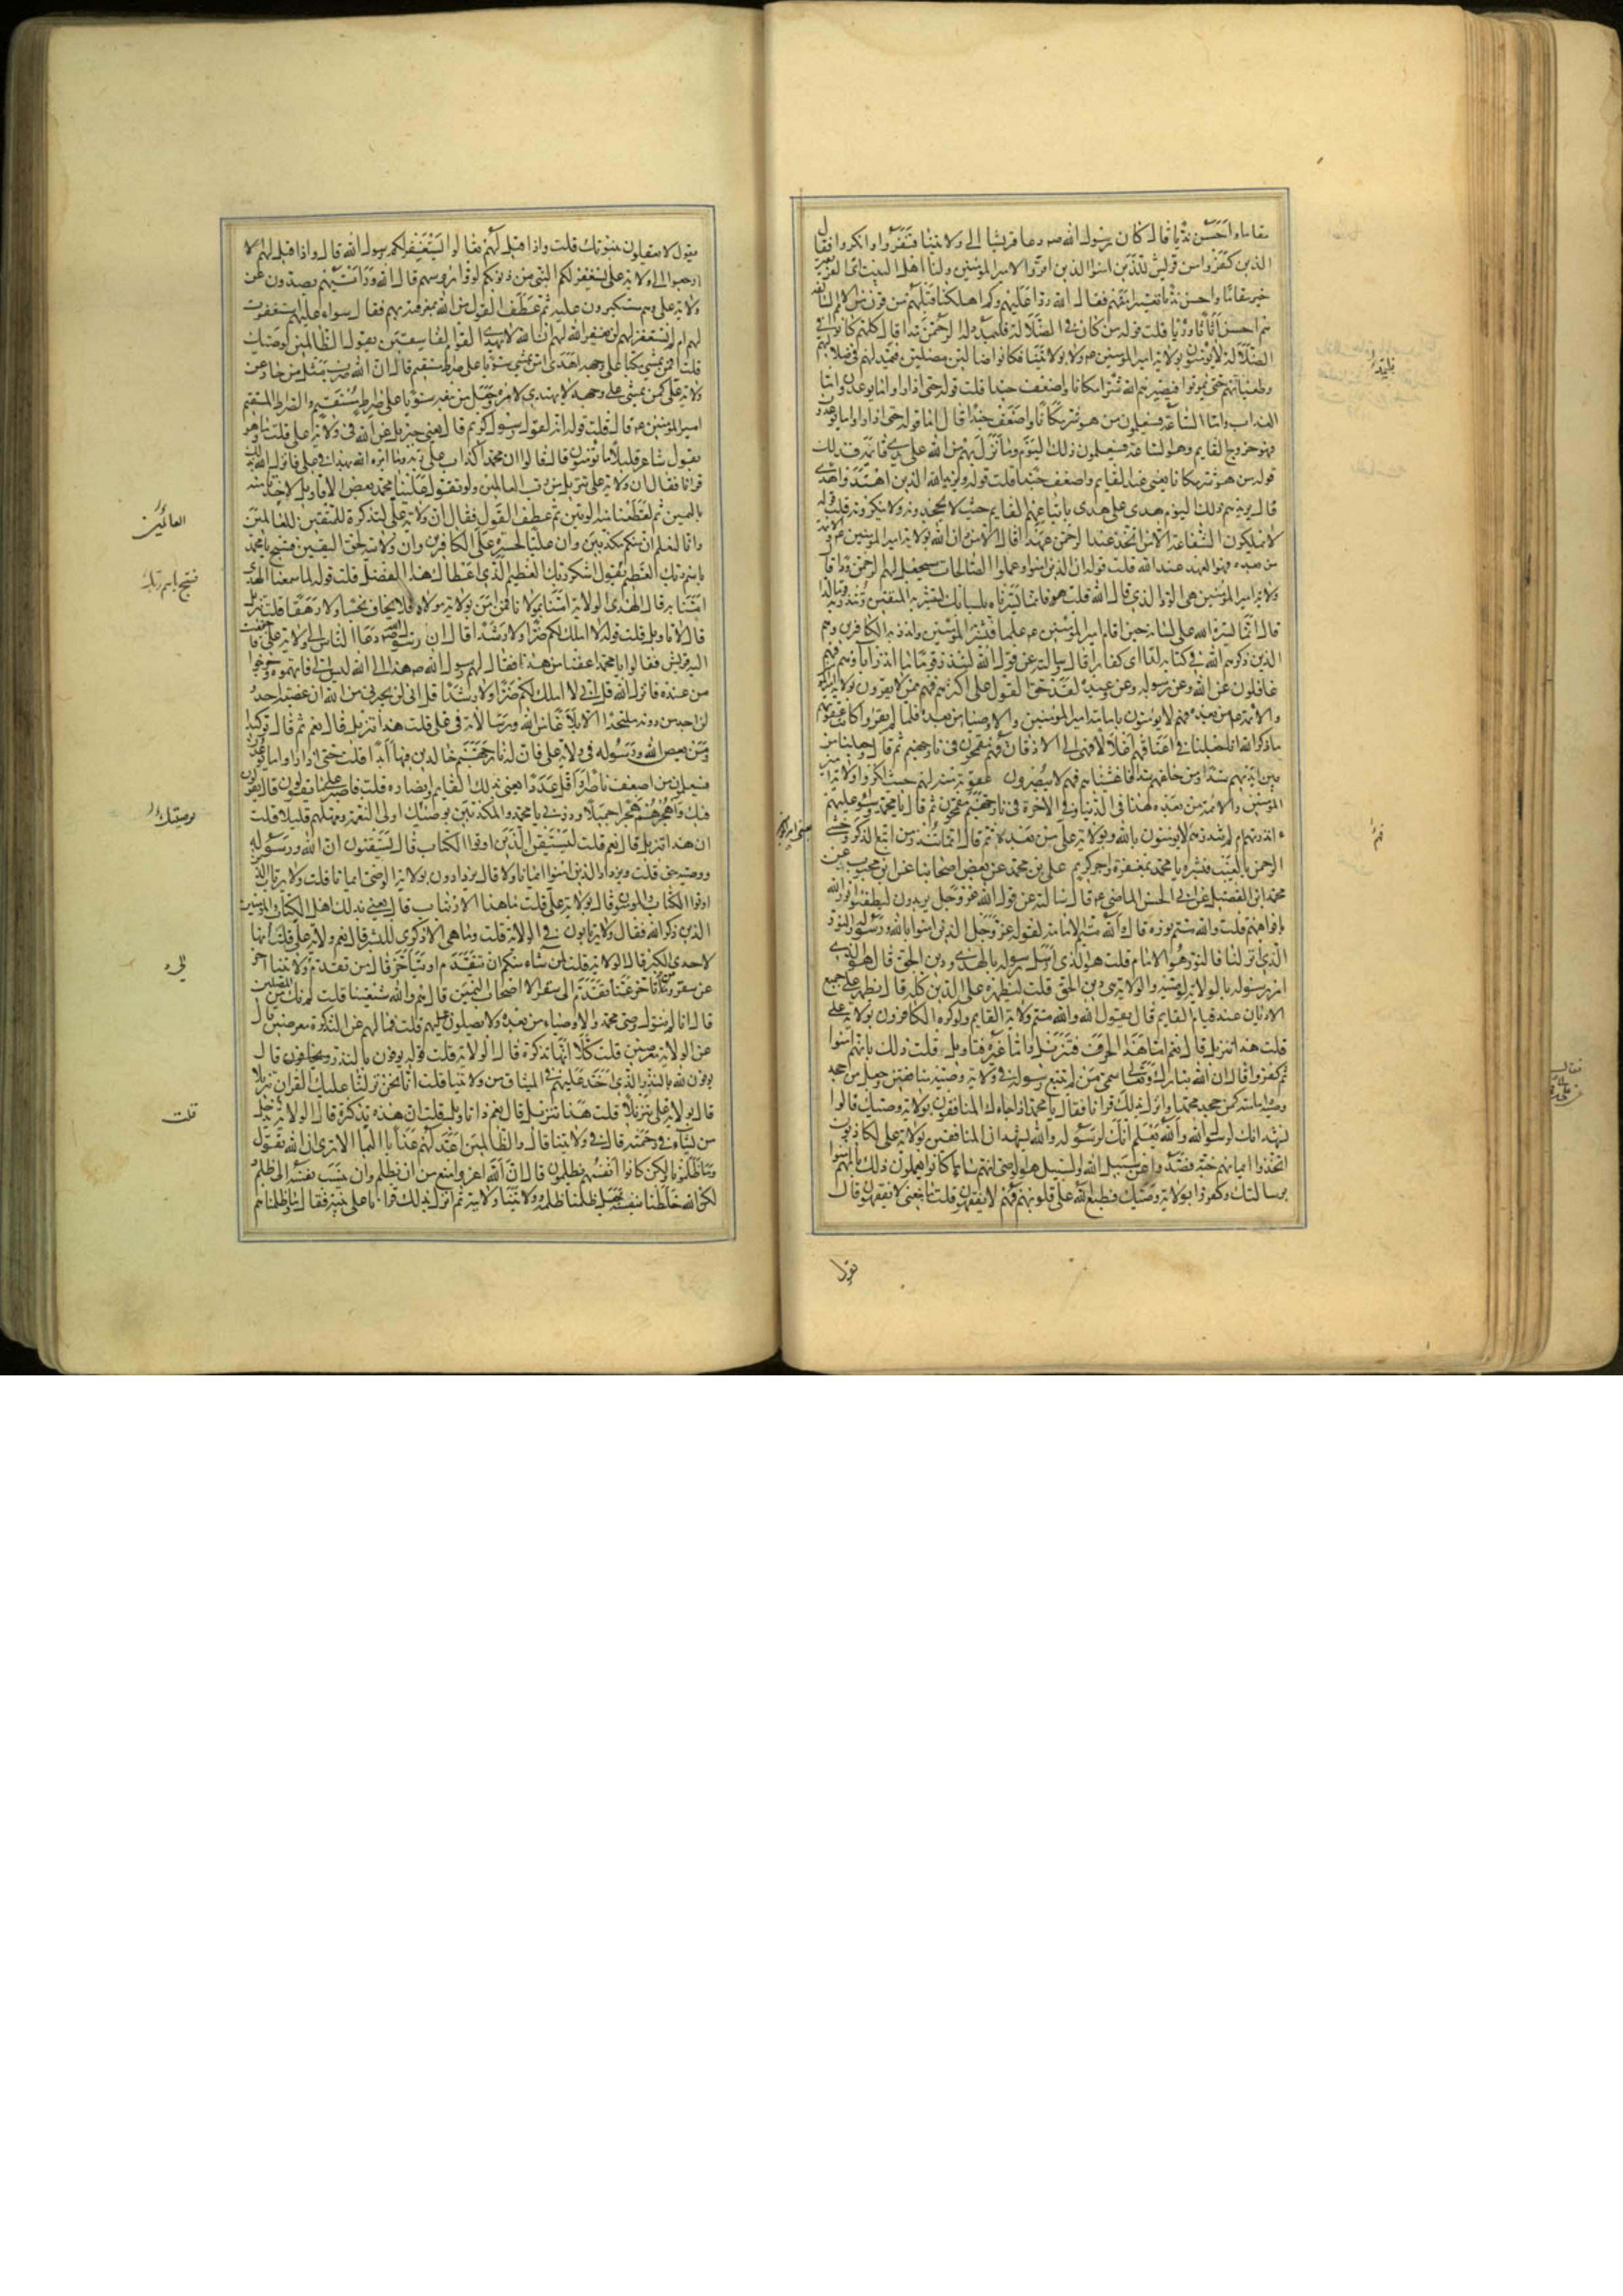 مقاما واحسن نديا قال كان رسول الله ص دعا قريشا الى ولايتنا فنفروا وانكروا فقال
الذين كفروا من قريش للذين امنوا الذين اقروا لامير المؤمنين ولنا اهل البيت اى الفريقين
خير مقاما واحسن نديا تعييرا منهم فقال الله ردا عليهم وكم اهلكنا قبلهم من قرن من الامم السالفة
هم احسن اثاثا ورئيا قلت قوله من كان فى الضلالة فليمدد له الرحمن مدا قال كلهم كانوا فى
الضلالة لا يؤمنون بولاية امير المؤمنين ع ولا بولايتنا فكانوا ضالين مضلين فيمد لهم فى ضلالتهم
وطغيانهم حتى يموتوا فيصيرهم الله شرا مكانا واضعف جندا قلت قوله حتى اذا راوا ما يوعدون اما
العذاب واما الساعة فسيعلمون من هو شر مكانا واضعف جندا قال اما قوله حتى اذا راوا ما يوعدون
فهو خروج القايم وهو الساعة فسيعلمون ذلك اليوم وما نزل بهم من الله على يدى قائمه فذلك
قوله من هو شر مكانا يعنى عند القايم واضعف جندا قلت قوله ويزيد الله الذين اهتدوا هدى
قال يزيدهم ذلك اليوم هدى على هدى باتباعهم القايم حيث لا يجحدونه ولا ينكرونه قلت قوله
لا يملكون الشفاعة الا من اتخذ عند الرحمن عهدا قال الا من دان الله بولاية امير المؤمنين والائمة
من بعده فهو العهد عند الله قلت قوله ان الذين امنوا وعملوا الصالحات سيجعل لهم الرحمن ودا قال
ولاية امير المؤمنين هى الود الذى قال الله قلت فانما يسرناه بلسانك لتبشر به المتقين وتنذر به قوما لدا
قال انما يسره الله على لسانه حين اقام امير المؤمنين ع علما فبشر به المؤمنين وانذر به الكافرين وهم
الذين ذكرهم الله فى كتابه لدا اى كفارا قال سالته عن قول الله لتنذر قوما ما انذر اباؤهم فهم
غافلون عن الله وعن رسوله وعن وعيده لقد حق القول على اكثرهم ممن لا يقرون بولاية امير المؤمنين
والائمة من بعده فهم لا يؤمنون بامامة امير المؤمنين والاوصياء من بعده فلما لم يقروا كانت عقوبتهم
ما ذكر الله انا جعلنا فى اعناقهم اغلالا فهى الى الاذقان فهم مقمحون فى نار جهنم ثم قال وجعلنا من
بين ايديهم سدا ومن خلفهم سدا فاغشيناهم فهم لا يبصرون عقوبة منه لهم حيث انكروا ولاية امير
المؤمنين والائمة من بعده هذا فى الدنيا وفى الاخرة فى نار جهنم مقمحون ثم قال يا محمد وسواء عليهم
ءانذرتهم ام لم تنذرهم لا يؤمنون بالله وبولاية على ومن بعده ثم قال انما تنذر من اتبع الذكر وخشى
الرحمن بالغيب فبشره يا محمد بمغفرة واجر كريم على بن محمد عن بعض اصحابنا عن ابن محبوب عن
محمد بن الفضيل عن ابى الحسن الماضى ع قال سالته عن قول الله عز وجل يريدون ليطفئوا نور الله
بافواههم قلت والله متم نوره قال والله متم الامامة لقوله عز وجل الذين امنوا بالله ورسوله والنور
الذى انزلنا قال النور هو الامام قلت هو الذى ارسل رسوله بالهدى ودين الحق قال هو الذى
امر رسوله بالولاية لوصيه والولاية هى دين الحق قلت ليظهره على الدين كله قال يظهره على جميع
الاديان عند قيام القايم قال يقول الله والله متم ولاية القايم ولو كره الكافرون بولاية على
قلت هذا تنزيل قال نعم اما هذا الحرف فتنزيل واما غيره فتاويل قلت ذلك بانهم امنوا
ثم كفروا قال ان الله تبارك وتعالى سمى من لم يتبع رسوله فى ولاية وصيه منافقين وجعل من جحد
وصيه امامته كمن جحد محمدا وانزل بذلك قرانا فقال يا محمد اذا جاءك المنافقون بولاية وصيك قالوا
نشهد انك لرسول الله والله يعلم انك لرسوله والله يشهد ان المنافقين بولاية على لكاذبون
اتخذوا ايمانهم جنة فصدوا عن سبيل الله والسبيل هو الوصى انهم ساء ما كانوا يعملون ذلك بانهم امنوا
برسالتك وكفروا بولاية وصيك فطبع الله على قلوبهم فهم لا يفقهون قلت ما معنى لا يفقهون قال
يقول
يقول لا يعقلون بنبوتك قلت واذا قيل لهم تعالوا يستغفر لكم رسول الله قال واذا قيل لهم
ارجعوا الى ولاية على يستغفر لكم النبى من ذنوبكم لووا رؤسهم قال الله ورايتهم يصدون عن
ولاية على وهم مستكبرون عليه ثم عطف القول من الله بمعرفته بهم فقال سواء عليهم استغفرت
لهم ام لم تستغفر لهم لن يغفر الله لهم ان الله لا يهدى القوم الفاسقين يقول الظالمين لوصيك
قلت افمن يمشى مكبا على وجهه اهدى امن يمشى سويا على صراط مستقيم قال ان الله ضرب مثل من حاد عن
ولاية على كمن يمشى على وجهه لا يهتدى لامره وجعل من تبعه سويا على صراط مستقيم والصراط المستقيم
امير المؤمنين ع قال قلت قوله انه لقول رسول كريم قال يعنى جبريل عن الله فى ولاية على قلت وما هو
بقول شاعر قليلا ما تؤمنون قال قالوا ان محمدا كذاب على ربه وما امره الله بهذا فى على فانزل الله بذلك
قرانا فقال ان ولاية على تنزيل من رب العالمين ولو تقول علينا محمد بعض الاقاويل لاخذنا منه
باليمين ثم لقطعنا منه الوتين ثم عطف القول فقال ان ولاية على لتذكرة للمتقين للعالمين
وانا لنعلم ان منكم مكذبين وان عليا لحسرة على الكافرين وان ولايته لحق اليقين فسبح يا محمد
باسم ربك العظيم يقول اشكر ربك العظيم الذى اعطاك هذا الفضل قلت قوله لما سمعنا الهدى
امنا به قال الهدى الولاية امنا بمولانا فمن امن بولاية مولاه فلا يخاف بخسا ولا رهقا قلت تنزيل
قال لا تاويل قلت قوله لا املك لكم ضرا ولا رشدا قال ان رسول الله ص دعا الناس الى ولاية على فاجتمعت
اليه قريش فقالوا يا محمد اعفنا من هذا فقال لهم رسول الله ص هذا الى الله ليس الى فاتهموه وخرجوا
من عنده فانزل الله قل انى لا املك لكم ضرا ولا رشدا قل انى لن يجيرنى من الله ان عصيته احد
ولن اجد من دونه ملتحدا الا بلاغا من الله ورسالاته فى على قلت هذا تنزيل قال نعم ثم قال توكيدا
ومن يعص الله ورسوله فى ولاية على فان له نار جهنم خالدين فيها ابدا قلت حتى اذا راوا ما يوعدون
فسيعلمون من اضعف ناصرا واقل عددا يعنى بذلك القايم وانصاره قلت فاصبر على ما يقولون قال يقولون
فيك واهجرهم هجرا جميلا وذرنى يا محمد والمكذبين بوصيك اولى النعمة ومهلهم قليلا قلت
ان هذا تنزيل قال نعم قلت ليستيقن الذين اوتوا الكتاب قال يستيقنون ان الله ورسوله
ووصيه حق قلت ويزداد الذين امنوا ايمانا قال يزدادون بولاية الوصى ايمانا قلت ولا يرتاب الذين
اوتوا الكتاب والمؤمنون قال بولاية على قلت ما هذا الارتياب قال يعنى بذلك اهل الكتاب والمؤمنين
الذين ذكر الله فقال ولا يرتابون فى الولاية قلت وما هى الا ذكرى للبشر قال نعم ولاية على قلت انها
لاحدى الكبر قال الولاية قلت لمن شاء منكم ان يتقدم او يتاخر قال من تقدم الى ولايتنا اخر
عن سقر ومن تاخر عنا تقدم الى سقر الا اصحاب اليمين قال هم والله شيعتنا قلت لم نك من المصلين
قال انا لم نتول وصى محمد والاوصياء من بعده ولا يصلون عليهم قلت فما لهم عن التذكرة معرضين قال
عن الولاية معرضين قلت كلا انها تذكرة قال الولاية قلت قوله يوفون بالنذر ويخافون قال
يوفون لله بالنذر الذى اخذ عليهم فى الميثاق من ولايتنا قلت انا نحن نزلنا عليك القران تنزيلا
قال بولاية على تنزيلا قلت هذا تنزيل قال نعم ذا تاويل قلت ان هذه تذكرة قال الولاية يدخل
من يشاء فى رحمته قال فى ولايتنا قال والظالمين اعد لهم عذابا اليما الا ترى ان الله يقول
وما ظلمونا ولكن كانوا انفسهم يظلمون قال ان الله اعز وامنع من ان يظلم وان ينسب نفسه الى ظلم
لكن الله خلطنا بنفسه فجعل ظلمنا ظلمه وولايتنا ولايته ثم انزل بذلك قرانا على نبيه فقال وما ظلمناهم
العالمين
فسبح باسم ربك
بوصيتك
قلت